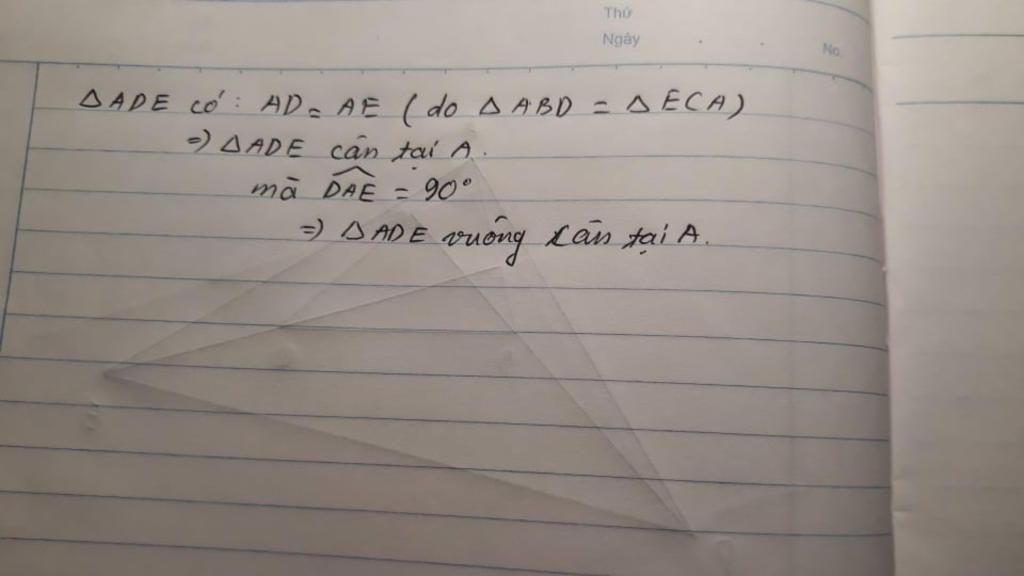 Thứ
Ngày
No.
△ADE có: AD = AE (do △ABD = △ECA)
=) △ADE cân tại A.
mà DAE = 90°
=) △ADE vuông cân tại A.